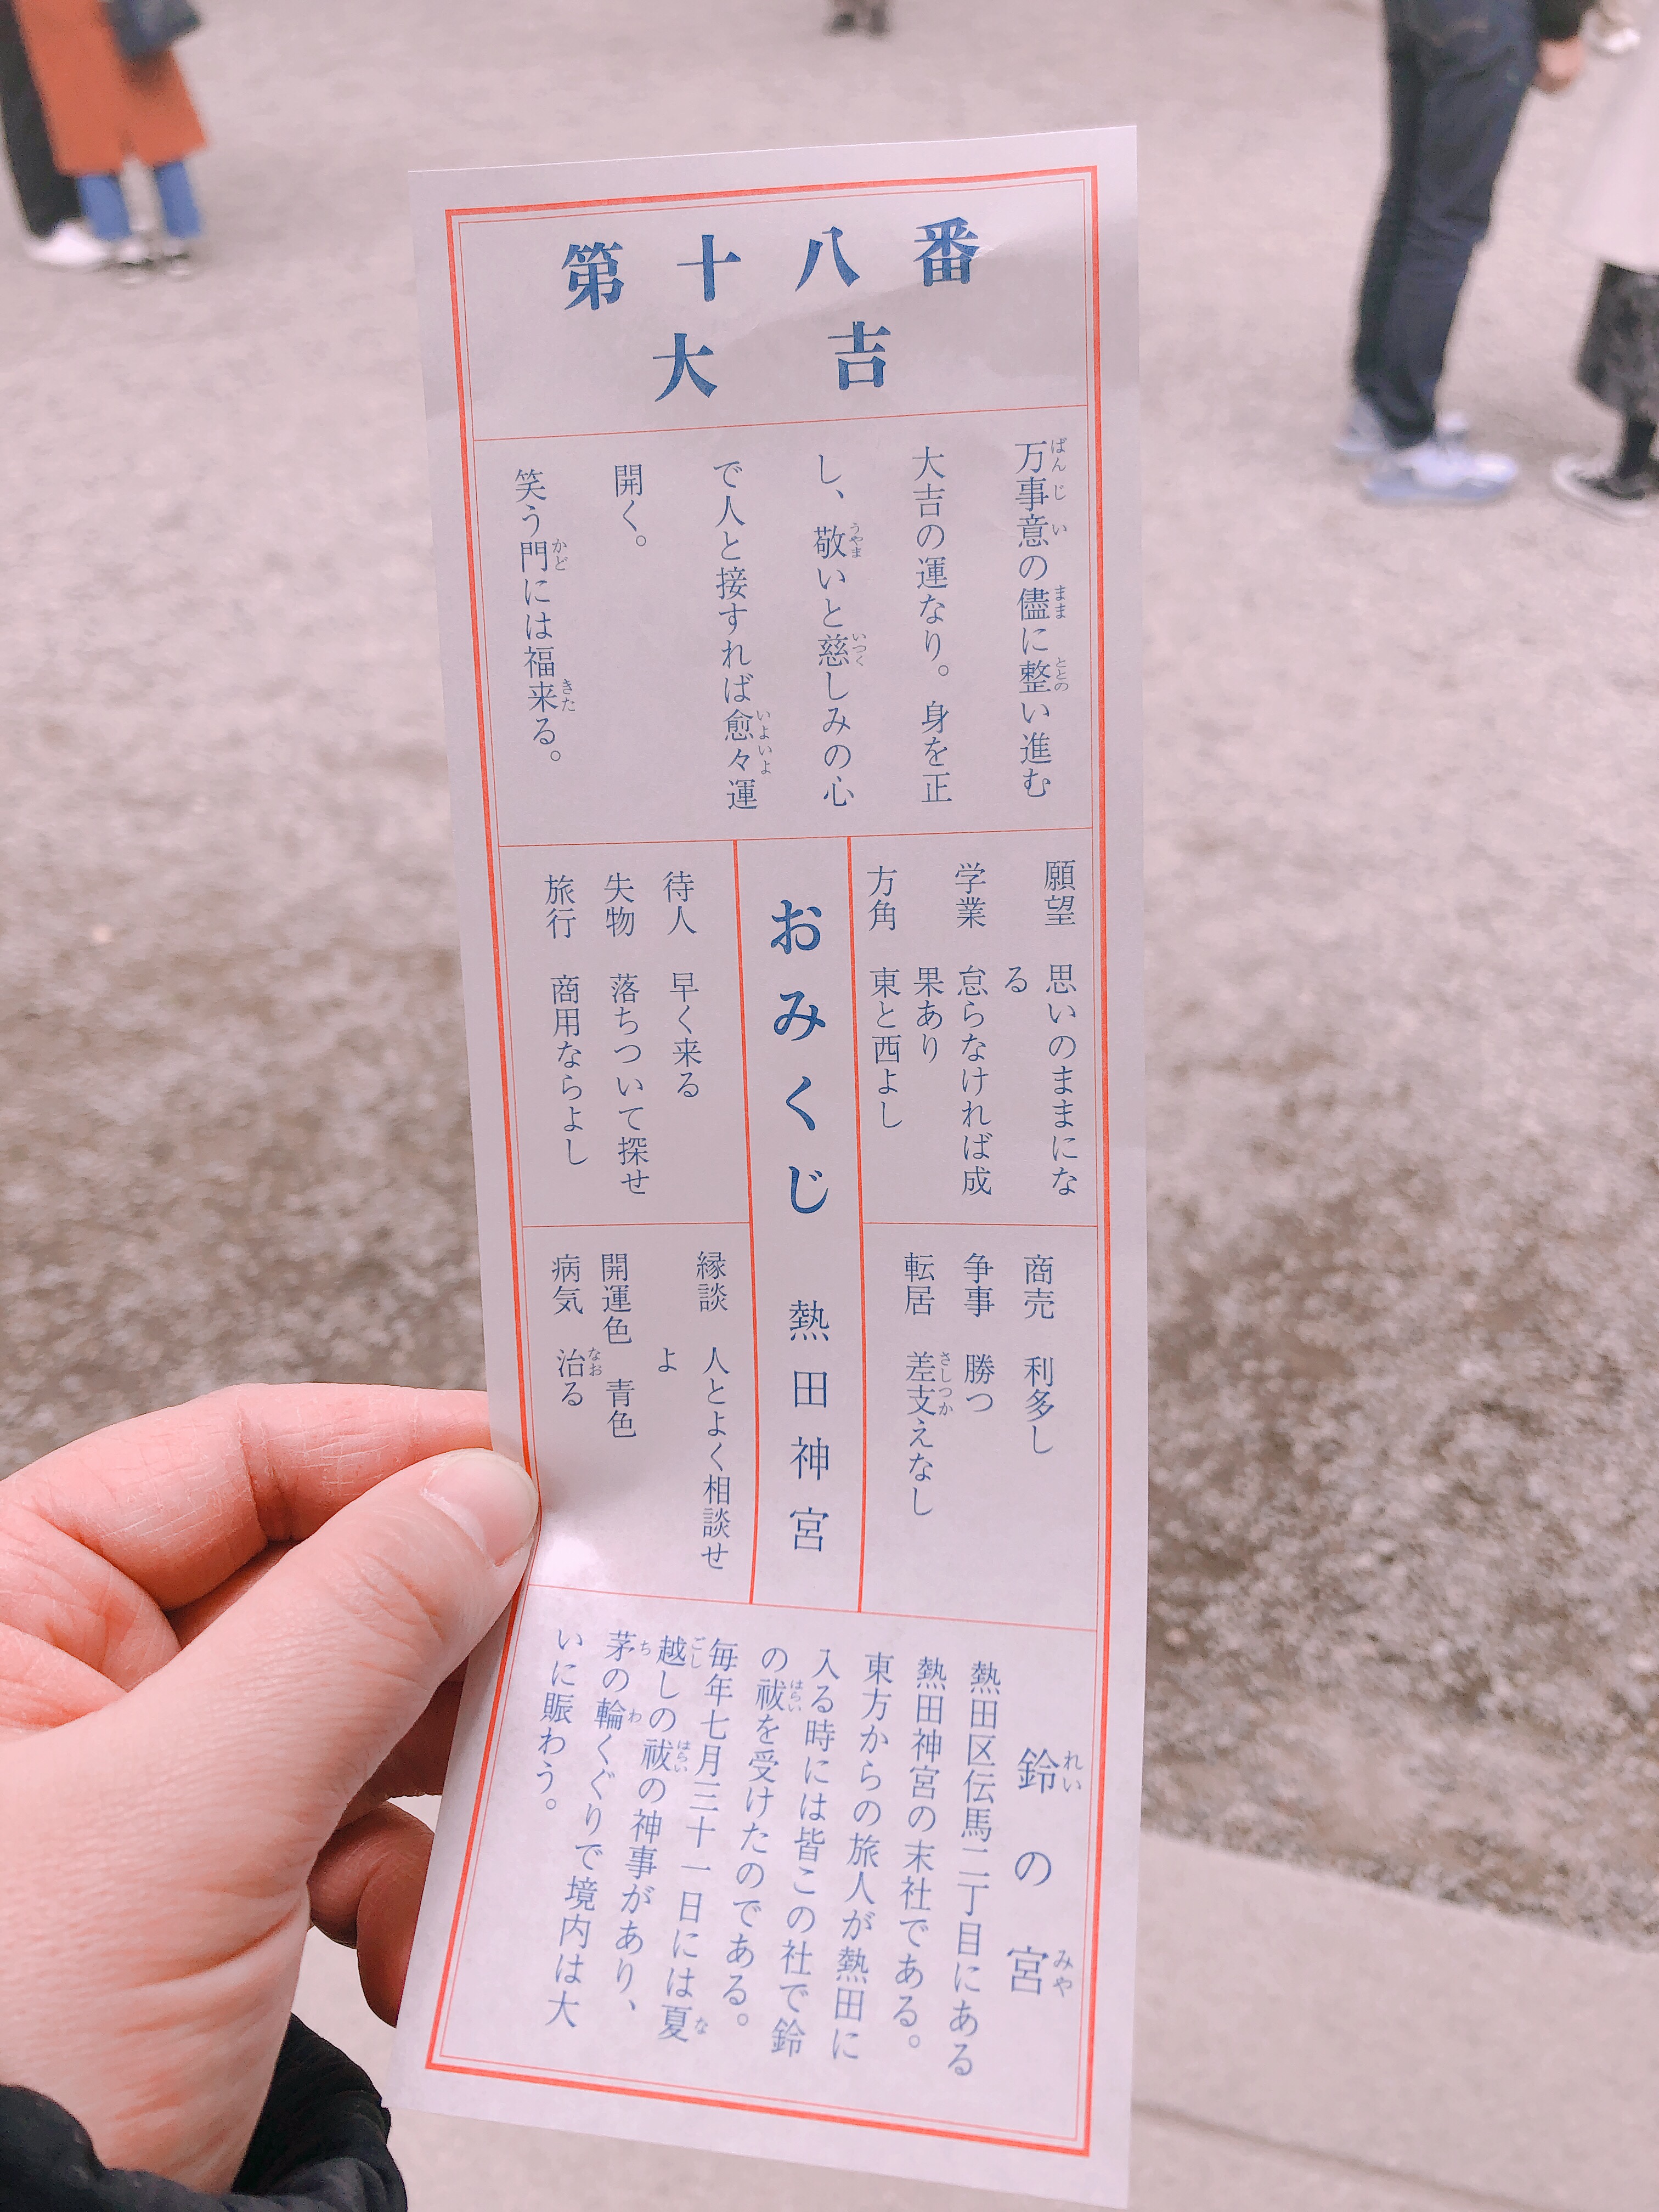 第十八番
大吉
万事意の儘に整い進む
大吉の運なり。身を正
し、敬いと慈しみの心
で人と接すれば愈々運
開く。
笑う門には福来る。
願望 思いのままにな
る
学業 怠らなければ成
果あり
方角 東と西よし
商売 利多し
争事 勝つ
転居 差支えなし
おみくじ 熱田神宮
待人 早く来る
失物 落ちついて探せ
旅行 商用ならよし
縁談 人とよく相談せ
よ
開運色 青色
病気 治る
鈴の宮
熱田区伝馬二丁目にある
熱田神宮の末社である。
東方からの旅人が熱田に
入る時には皆この社で鈴
の祓を受けたのである。
毎年七月三十一日には夏
越しの祓の神事があり、
茅の輪くぐりで境内は大
いに賑わう。